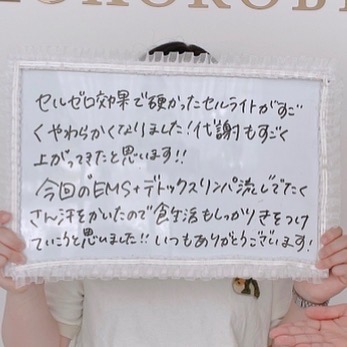 セルゼロ効果で硬かったセルライトがすご
くやわらかくなりました!代謝もすごく
上がってきたと思います!!
今回のEMS+デトックスリンパ流しでたく
さん汗をかいたので食生活もしっかりきをつけ
ていこうと思いました!!いつもありがとうございます!